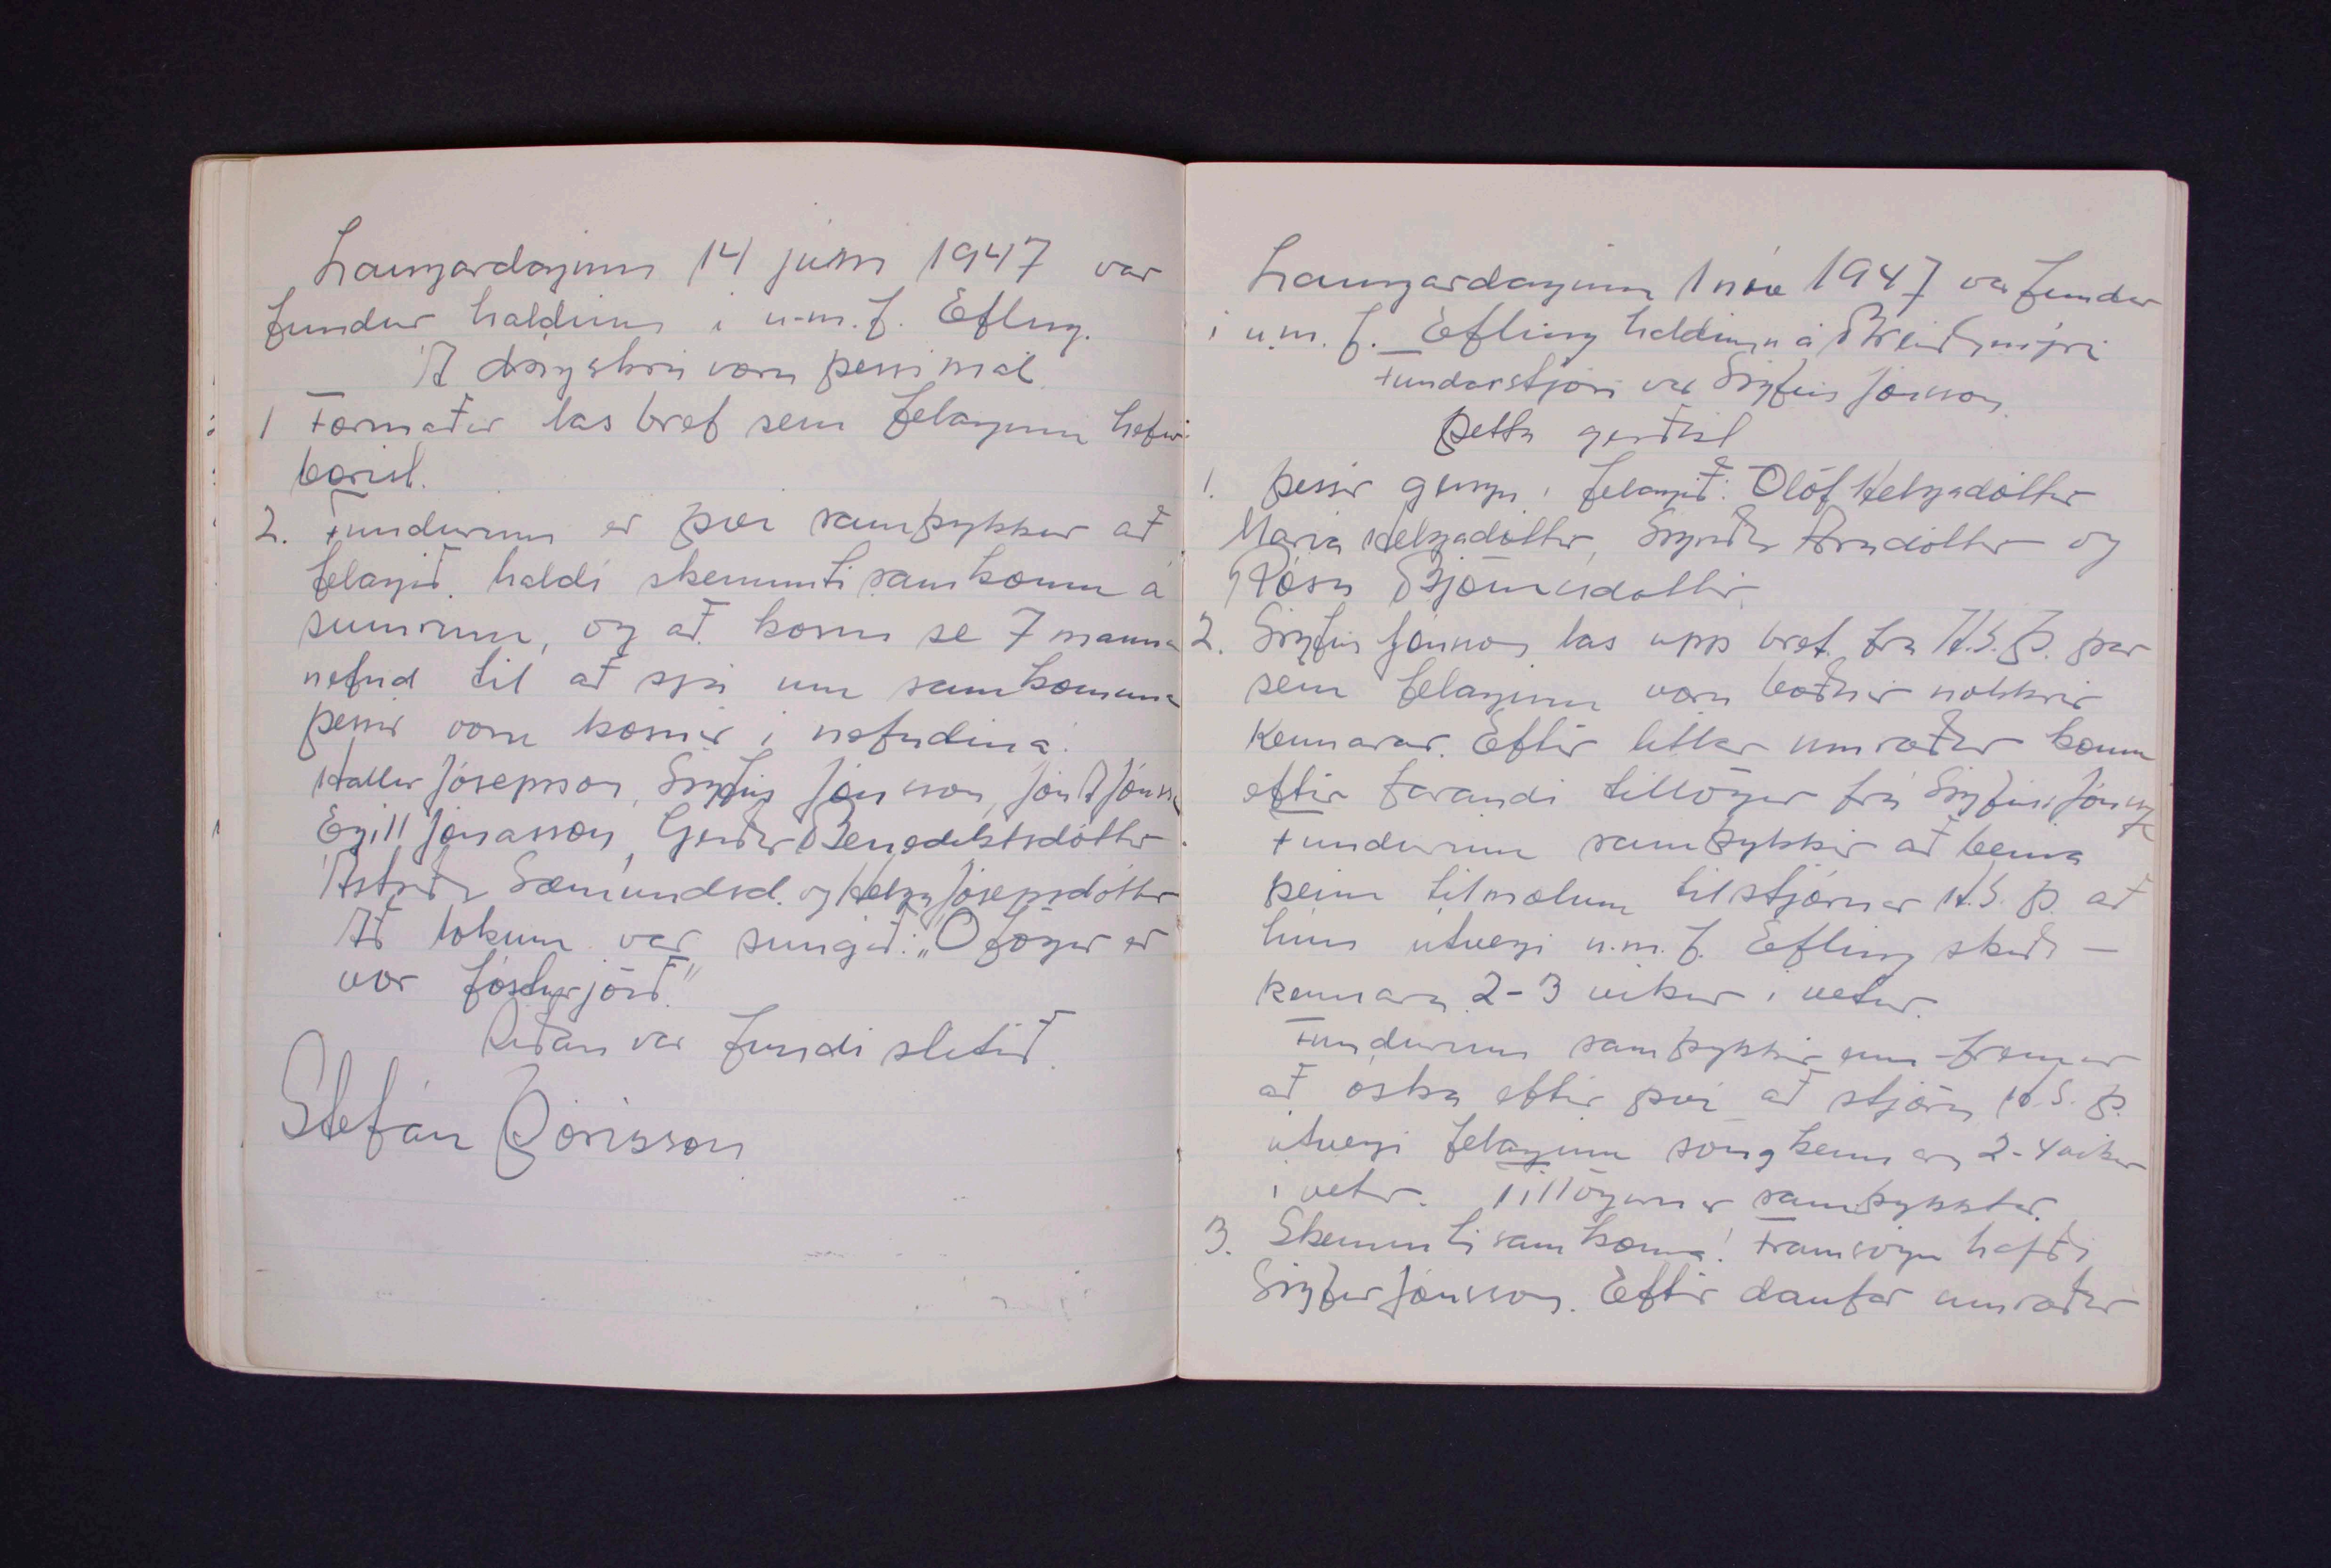 Laugardaginn 14 júni 1947 var
fundur haldinn i u.m.f. Efling.
Á dagskrá voru þessi mál
1 Formaður las bref sem felaginu hefur
borist.
2. Fundurinn er því samþykkur að
felagið haldi skemmtisamkomu á
sumrinu, og að kosin se 7 manna
nefnd til að sjá um samkomuna
þessir voru kosnir i nefndina:
Haller Jósepsson, Sigfús Jónsson, Jón A Jónss
Egill Jónasson, Gerður Benediktsdóttir
Ástríður Sæmundsd. og Helga Jósepsdóttir
Að lokum var sungið: „Ó fögur er
vor fósturjörð"
Siðan var fundi slitið.
Stefán Þórisson
Laugardaginn 1 nóv 1947 var fundur
i u.m.f. Efling haldinn á Breiðumýri
Fundarstjóri var Sigfús Jónsson.
Þetta gerðist
1. Þessir gengu i felagið: Ólöf Helgadóttir
Maria Helgadóttir, Sigriður Arnadóttir og
Rósa Björnsdottir.
2. Sigfús Jónsson las upp bref frá H.S.Þ. þar
sem felaginu voru boðnir nokkrir
Kennarar. Eftir litlar umræður komu
eftir farandi tillögur frá Sigfúsi Jónssy
Fundurinn samþykkir að beina
þeim tilmælum til stjórnar H.S.Þ. að
hún útvegi u.m.f. Efling skiða-
kennara 2-3 vikur i vetur.
Fundurinn samþykkir enn fremur
að óska eftir því að stjórn H.S.Þ.
útvegi felaginu söngkennara 2-4 vikur
i vetur. Tillögurnar samþykktar.
3. Skemmtisamkoma! Framsögu hafði
Sigfús Jónsson. Eftir daufar umræður